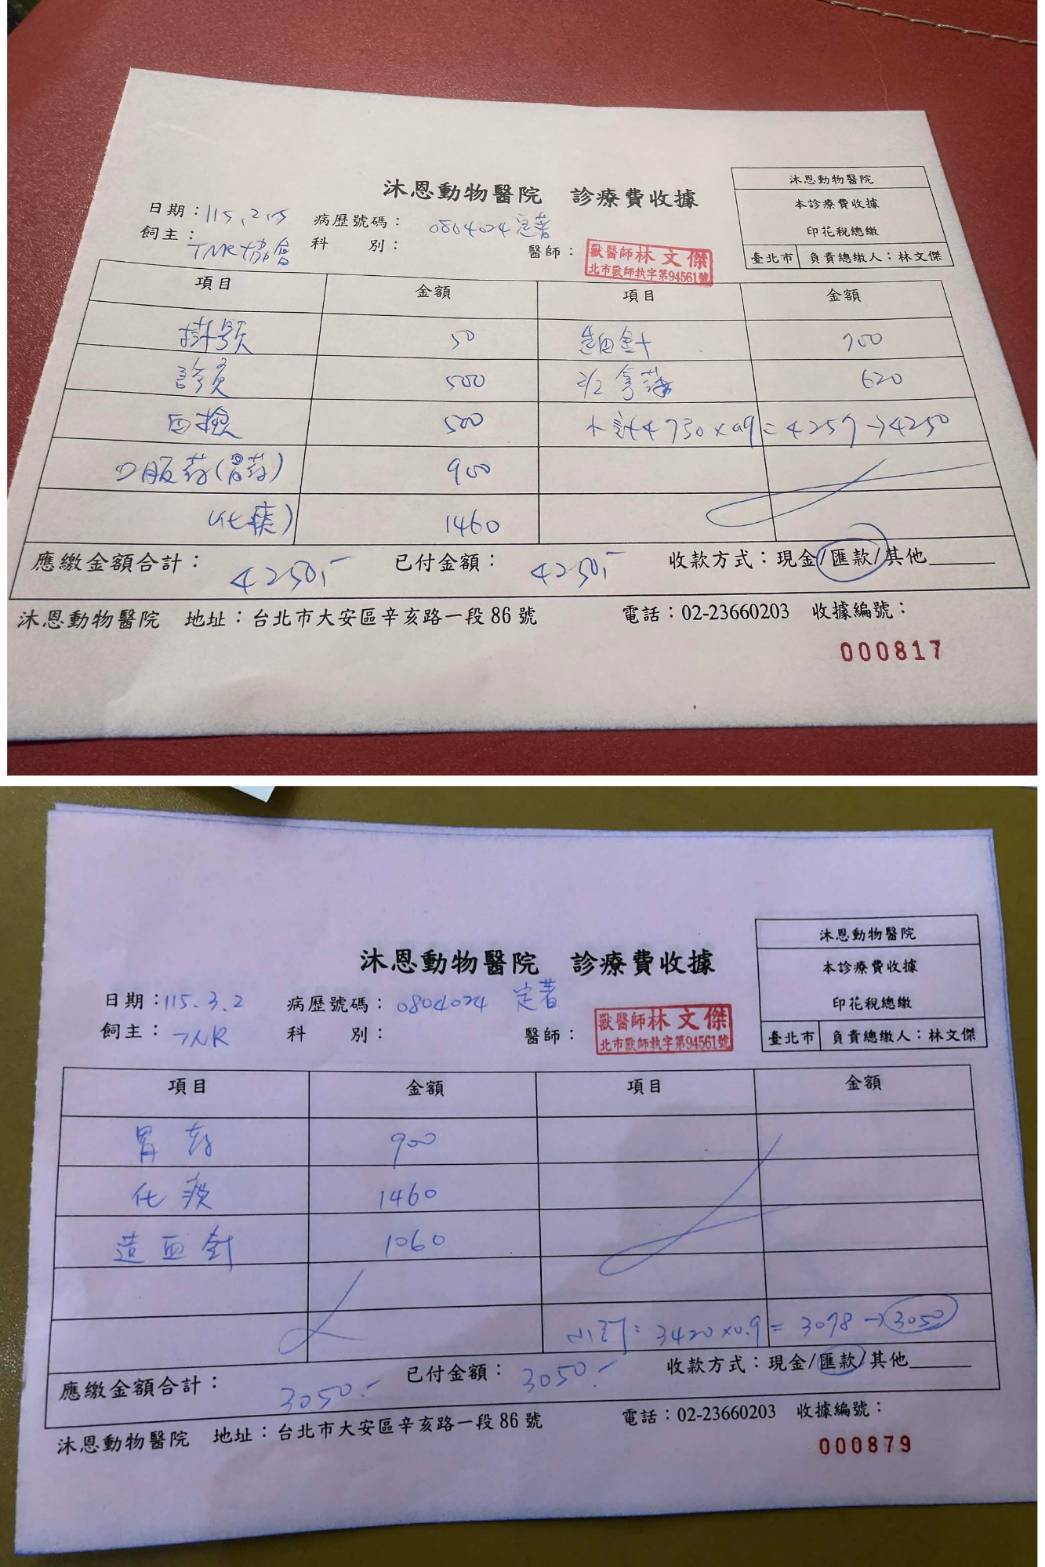 沐恩動物醫院 診療費收據
沐恩動物醫院
本診療費收據
印花稅總繳
臺北市 負責總繳人：林文傑
日期： 病歷號碼：0804024 定著
飼主：TNR協會 科 別： 醫師：
獸醫師林文傑
北市獸師執字第94561號
項目 金額 項目 金額
掛號 50 造血針 700
診費 500 2/2 拿藥 620
血檢 500 小計4730×0.9=4257→4250
口服葯(胃葯) 900
(化痰) 1460
應繳金額合計：4250,- 已付金額：4250,- 收款方式：現金/匯款/其他
沐恩動物醫院 地址：台北市大安區辛亥路一段86號 電話：02-23660203 收據編號：
000817
沐恩動物醫院 診療費收據
沐恩動物醫院
本診療費收據
印花稅總繳
臺北市 負責總繳人：林文傑
日期：115.3.2 病歷號碼：0804024 定著
飼主：TNR 科 別： 醫師：
獸醫師林文傑
北市獸師執字第94561號
項目 金額 項目 金額
胃葯 900
化痰 1460
造血針 1060
小計：3420×0.9=3078→3050
應繳金額合計：3050.- 已付金額：3050.- 收款方式：現金/匯款/其他
沐恩動物醫院 地址：台北市大安區辛亥路一段86號 電話：02-23660203 收據編號：
000879